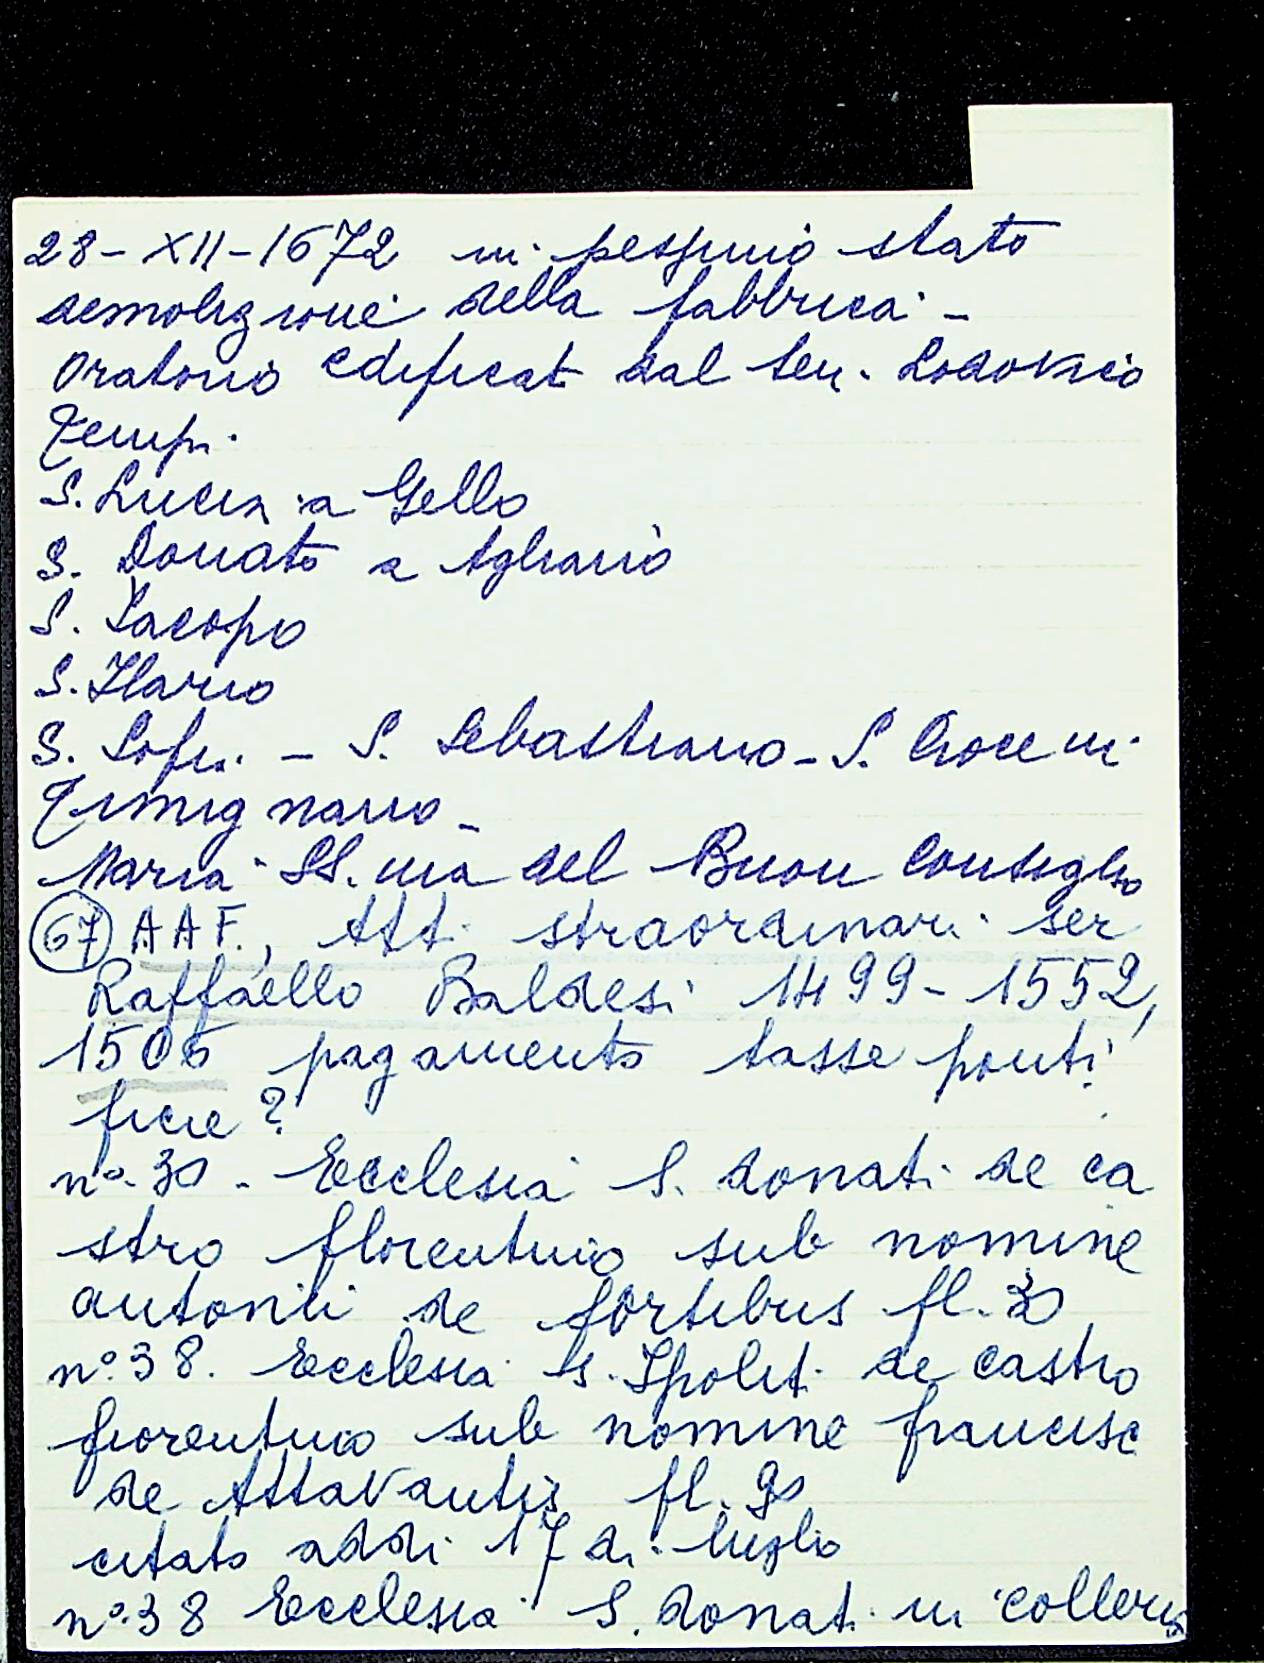 28-XII-1672 in pessimo stato
demolizione della fabbrica -
oratorio edificat dal Sen. Lodovico
Tempi.
S. Lucia a Gello
S. Donato a Agliano
S. Jacopo
S. Ilario
S. Sofia. - S. Sebastiano - S. Croce in
Timignano -
Maria SS.ma del Buon Consiglio
67 AAF., Atti straordinari ser
Raffaello Baldesi 1499-1552,
1506 pagamento tasse ponti
ficie?
n°. 30 - Ecclesia S. Donati de ca
stro florentino sub nomine
antonii de fortibus fl. 30
n°. 38. Ecclesia S. Ipoliti de castro
fiorentino sub nomine francisc
de Attavantis fl. 90
citato addi 17 di luglio
n°. 38 Ecclesia S. Donati in colleris